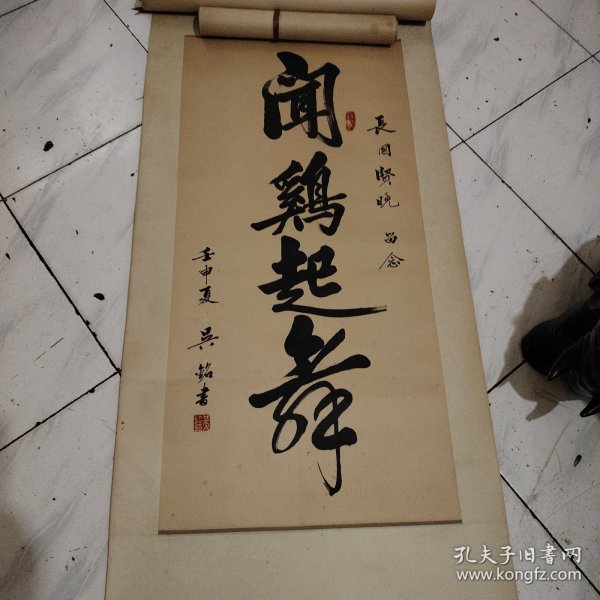 長国賢晚 留念
闻鷄起舞
壬申夏 吴銘書
孔夫子旧書网
www.kongfz.com